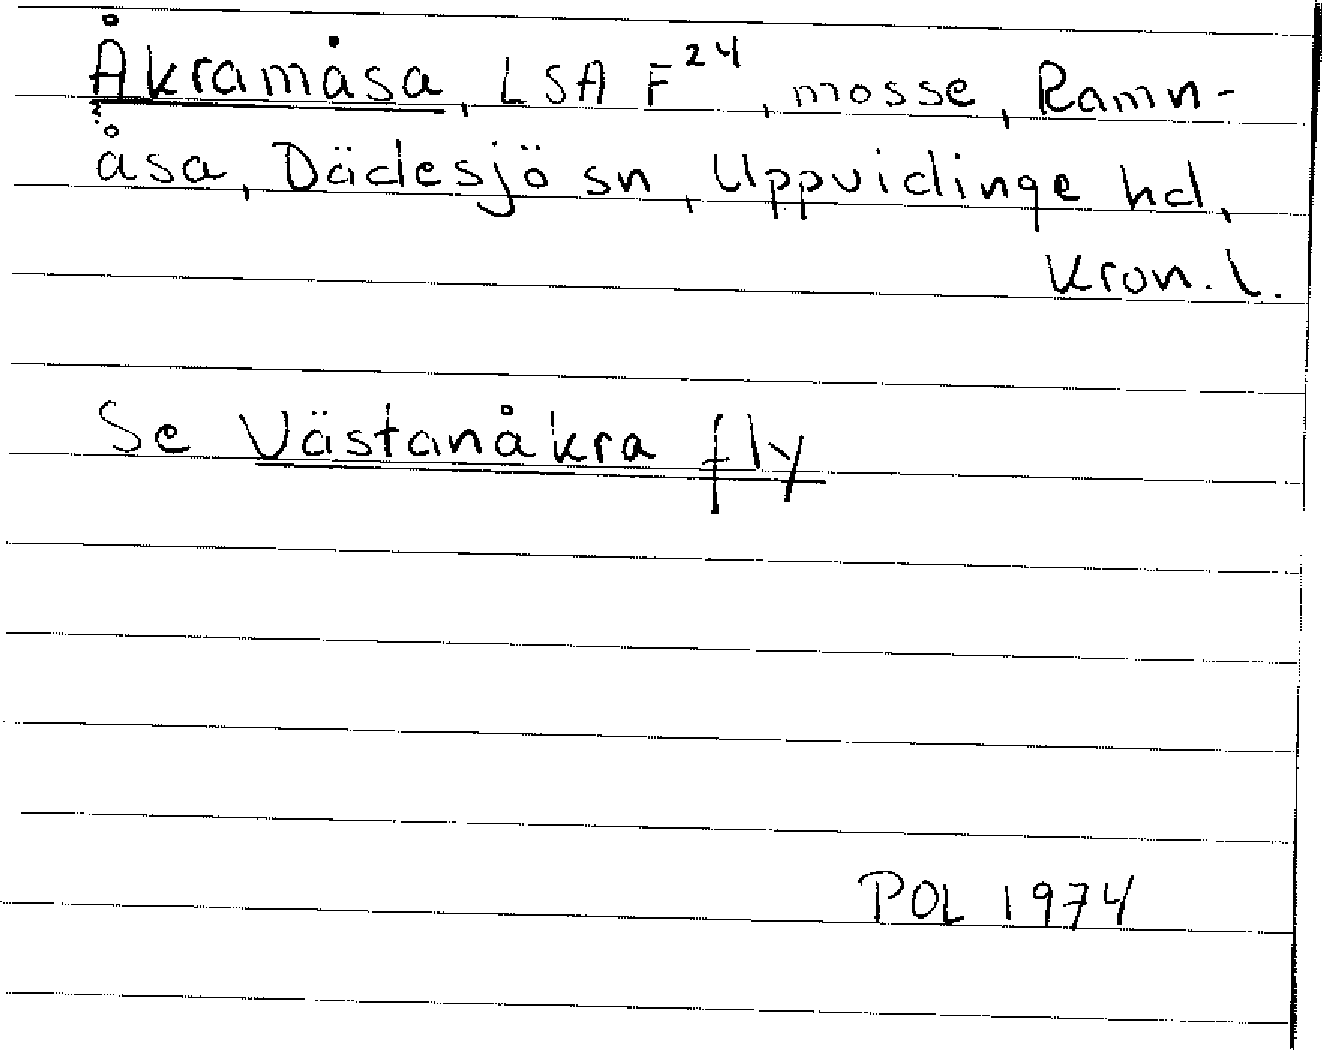 Åkramåsa, LSA F²⁴, mosse, Ramn-
åsa, Dädesjö sn, Uppvidinge hd,
Kron. l.
Se Västanåkra fly
POL 1974